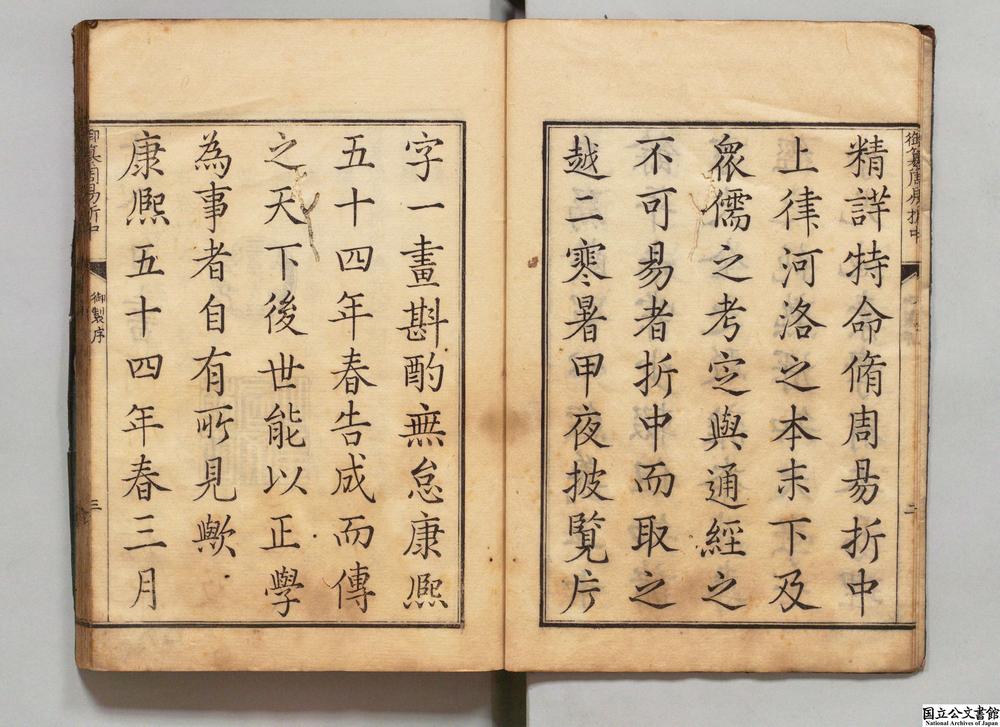 御纂周易折中
二
精詳特命脩周易折中
上律河洛之本末下及
衆儒之考定與通經之
不可易者折中而取之
越二寒暑甲夜披覽片
字一畫斟酌無怠康熈
五十四年春告成而傳
之天下後世能以正學
為事者自有所見歟
康熈五十四年春三月
御纂周易折中
御製序
三
国立公文書館
National Archives of Japan